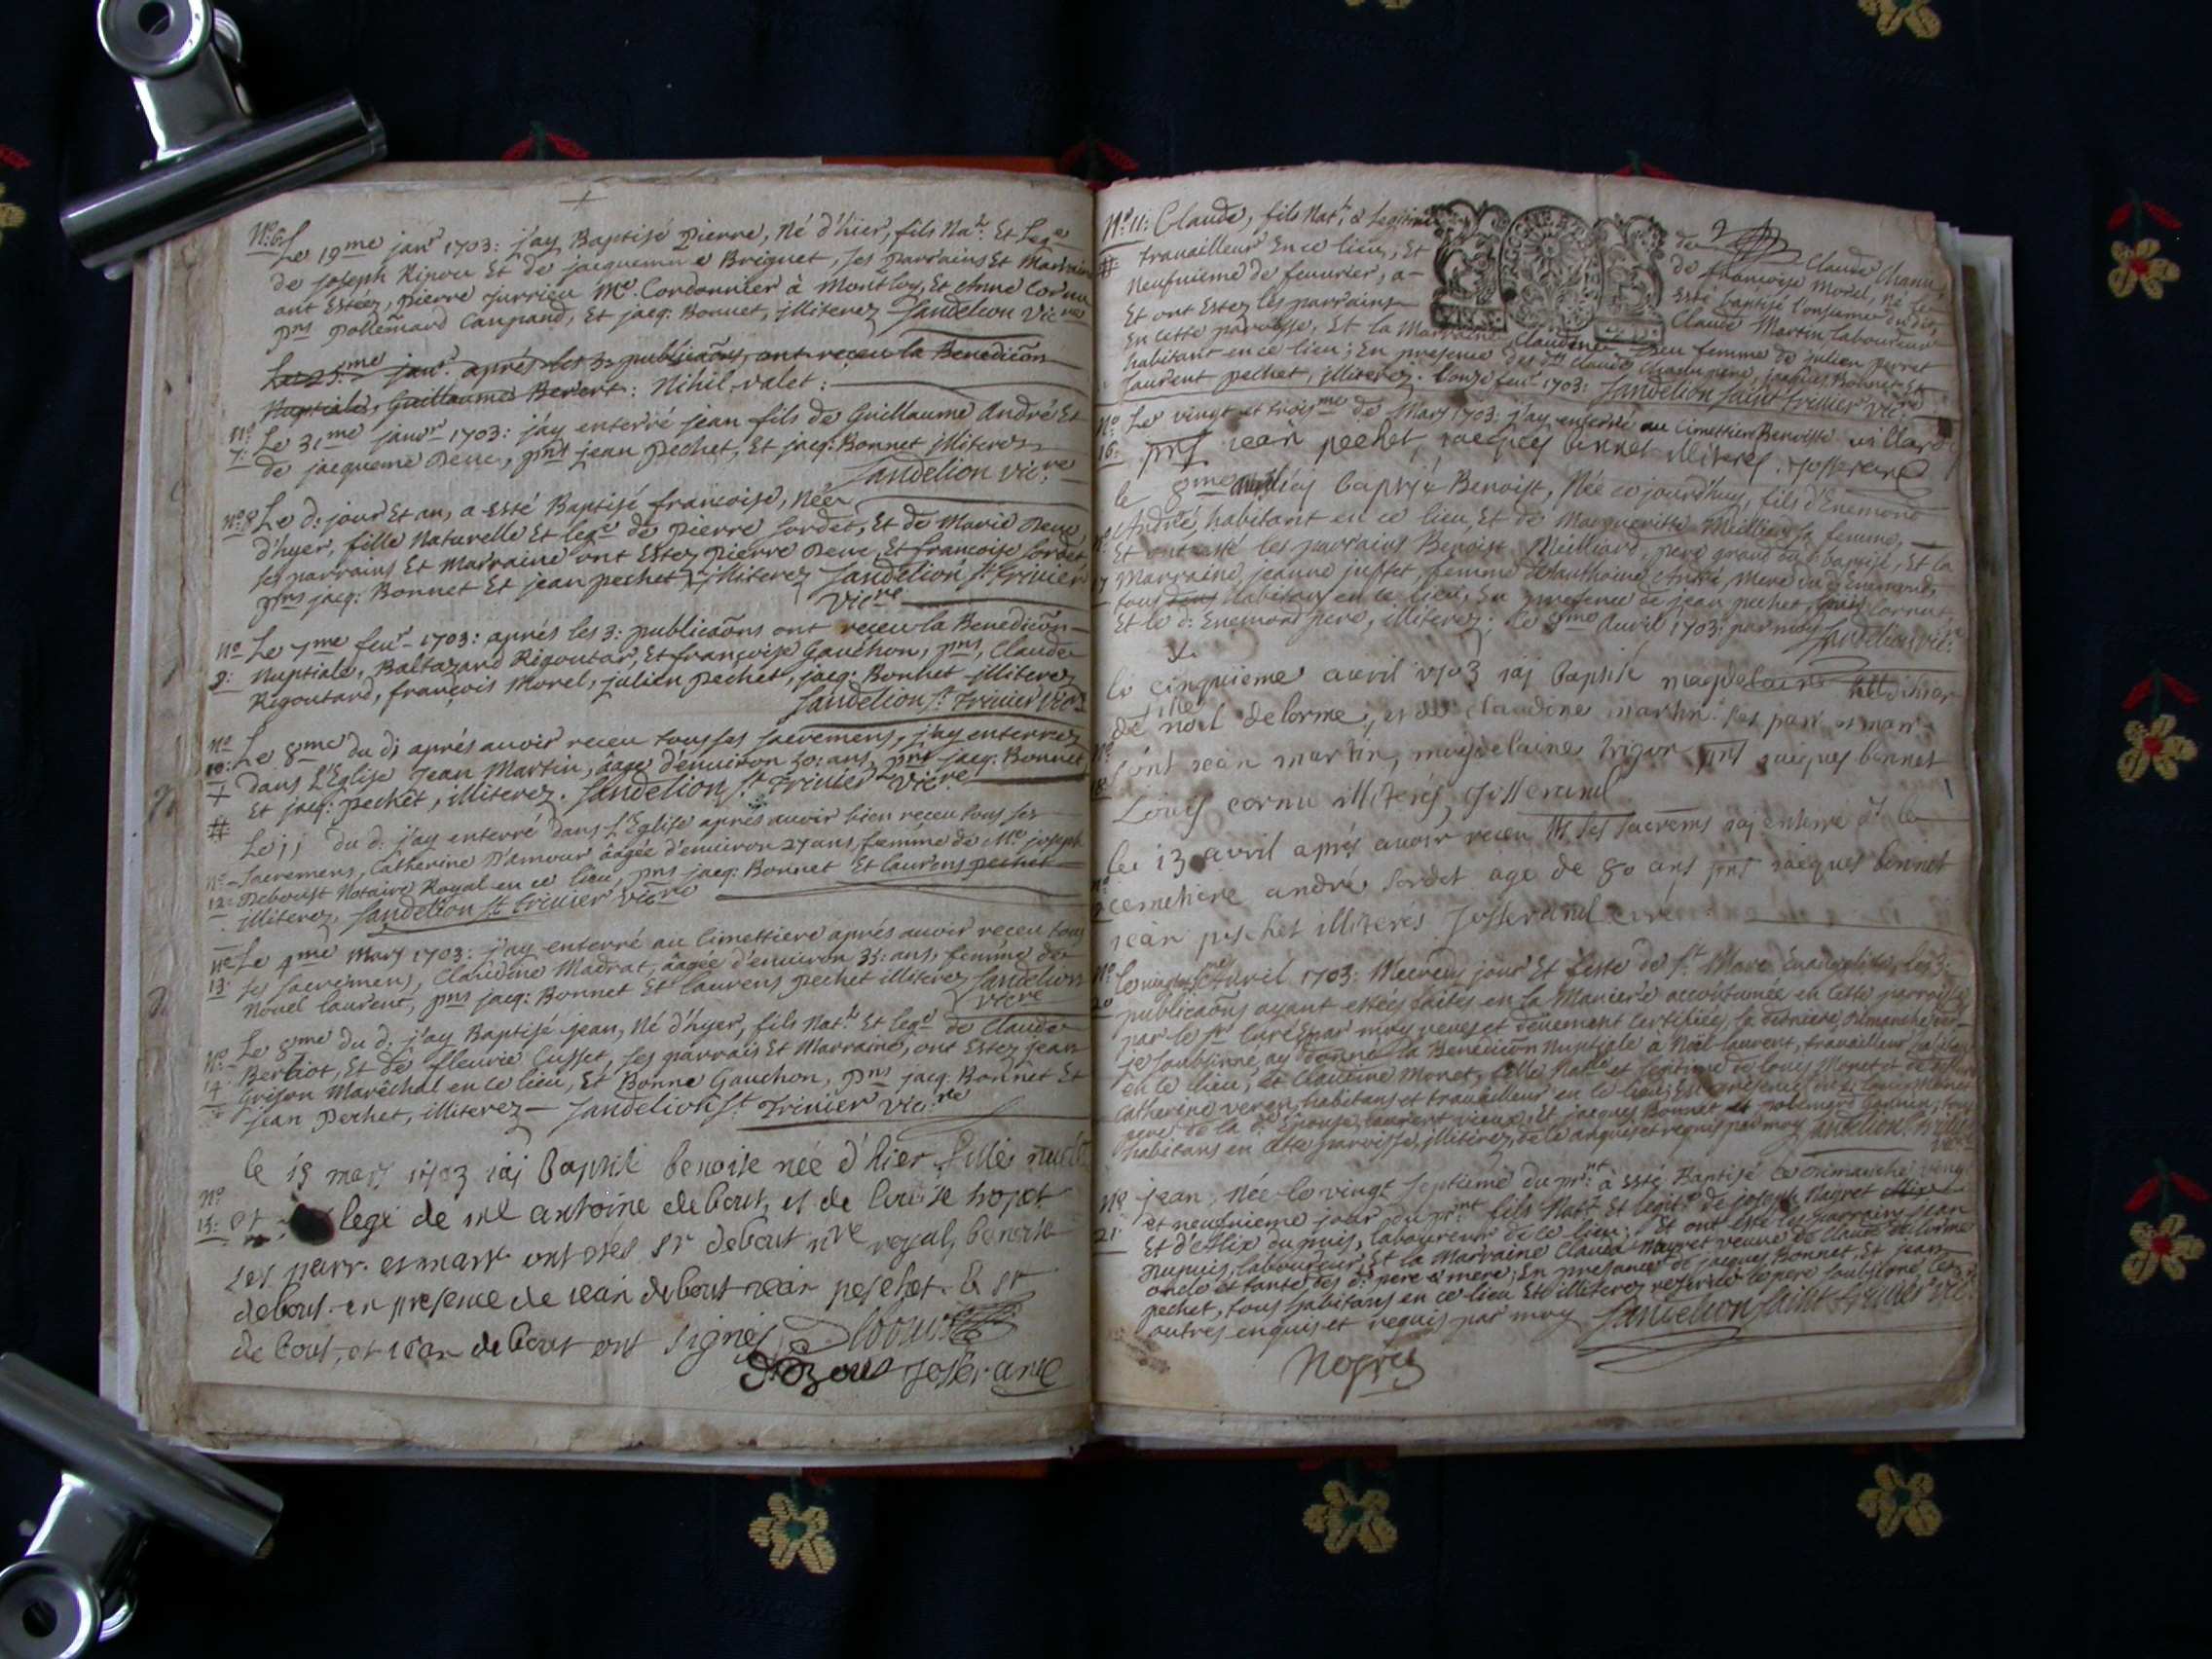 N.o 6: Le 19me janr 1703: j'ay Baptisé Pierre, Né d'hier, fils Nat. Et Lege
de joseph Et de jacquemine Briguet, ses parrains Et Marraine
ont Estéez, Pierre jurrieu Me. Cordonnier à Montluy, Et Anne Cornu
pns Et jacq: Bonnet, illiterez Sandelion Vicre
Le 25me janr. aprés les 3: publicaõns, ont receu la Benedicõn
Nuptiale, Guillaume Berert: Nihil valet:
No 7: Le 31me janvr 1703: j'ay enterré jean fils de Guillaume André Et
de jacqueme Deuc, pnt jean Pechet, Et jacq: Bonnet illiterez
Sandelion vicre
No 8 Le d: jour Et an, a esté Baptisé francoise, Née
d'hyer, fille Naturelle Et lege de Pierre Sordet, Et de Marie Deuc
ses parrains Et Marraine ont Estez Pierre Deuc, Et francoise Sordet
pns jacq: Bonnet Et jean pechet, illiterez Sandelion St Trivier
Vicre
No 9: Le 7me feur 1703: aprés les 3: publicaõns ont receu la Benedicõn
Nuptiale, Baltazard Rigoutar, Et françoise Gauchon, pns, Claude
Rigoutard, françois Morel, julien Pechet, jacq: Bonnet illiterez
Sandelion St Trivier Vicre
No 10: Le 8me du d: aprés avoir receu tous ses sacremens, j'ay enterrez
+ dans L'Eglise Jean Martin, âage d'environ 50: ans, pnt jacq: Bonnet
Et jacq: Pechet, illiterez. Sandelion St Trivier Vicre
# Le 11 du d: j'ay enterré dans L'Eglise aprés avoir bien receu tous ses
No 12: sacremens, Catherine D'amour âagée d'environ 27 ans, femme de Me joseph
Deboust Notaire Royal en ce lieu, pns jacq: Bonnet Et laurens pechet
illiterez, Sandelion St Trivier Vicre
No 13: Le 4me Mars 1703: j'ay enterré au Cimettiere aprés avoir receu tous
ses sacremens, Claudine Madrat, âagée d'environ 35: ans, femme de
Nouel laurent, pns jacq: Bonnet Et laurens pechet illiterez Sandelion
Vicre
No 14: Le 8me du d: j'ay Baptisé jean, Né d'hyer, fils Nat. Et lege de Claude
Berliot, Et de fleurie Cusset, ses parrais Et Marraine, ont Estez jean
Grison Maréchal en ce lieu, Et Bonne Gauchon, pns jacq: Bonnet Et
jean Pechet, illiterez — Sandelion St Trivier Vicre
le 15 mars 1703 iaj baptisé benoite née d'hier fille
No 15: et lege de me antoine debout, et de louise
ses parr. et marr. ont etés sr debout nre royal, benoite
debout. en presence de iean debout iean peschet. & sr
debout, et iean debout ont signés Debout
Debout Josserand
No 11: Claude, fils Nat. & Legitime de Claude Chanu,
# travailleur En ce lieu, Et de françoise Morel, né le
Neufuieme de feuurier, a Esté baptisé l'onsieme du dit,
Et ont Estez les parrains Claude Martin laboureur
En cette paroisse, Et la Marraine Claudine femme de julien perret
habitant en ce lieu; En presence de Claude jacques Bonnet Et
laurent pechet, illiterez. l'onze feur 1703: Sandelion Saint Trivier Vicre
No 16: Le vingt et troisme de Mars 1703: j'ay enterré au Cimettiere Benoiste villard
pnt iean pechet, jacques bonnet illiterés. Josserand
le 8me avril iaj baptisé Benoist, Née ce jourd'huy, fils d'Enemond
No 17 André, habitant en ce lieu, Et de Margueritte Meilliard sa femme,
Et ont esté les parrains Benoist Meilliard, pere grand du baptisé, Et la
Marraine jeanne juffet, femme d'anthoine André, Mere du d: enemond,
tous habitans en ce lieu, En presence de jean pechet, louis Cornut,
Et le d: Enemond pere, illiterez; le 8me Auril 1703: par moy Sandelion Vic.
le cinquieme auril 1703 iaj baptisé magdelaine
fille
de noel delorme, et de claudine martin. ses parr et marr
No 18: sont iean martin, magdelaine pnt jacques bonnet
Louys cornu illiterés, Josserand
No 19 le 13 avril aprés avoir receu ts ses sacrems iaj enterré ds le
cemetiere andré sordet agé de 80 ans pnt jacques bonnet
iean peschet illiterés Josserand curé
No 20 Auril 1703: Mecredy jour Et feste de St Marc Evangeliste, les 3:
publicaõns ayant estées faites en la Maniere accoûtumée en cette parroisse
par le Sr Curé & par moy veues et deuement Certifiées, la derniere Dimanche
je soubsigné, ay donné la Benedicõn Nuptiale à Noël laurent, travailleur habitant
en ce lieu, Et Claudine Monet, fille Natle et legitime de louys Monet et de
Catherine habitans et travailleur en ce lieu; En presence du d: louys Monet
pere de la d: Epouse, laurent vieux, Et jacques Bonnet et tous
habitans en cette parroisse, illiterez, de ce enquis et requis par moy Sandelion St Trivier
vicre
No 21: Jean, Née le vingt septieme du prnt à esté Baptisé ce Dimanche vingt
et neufuieme jour du prnt fils Nat. Et legite de joseph Nugret
Et d'Alix dupuis, laboureur de ce lieu; Et ont esté les parrains jean
Dupuis, laboureur, Et la Marraine Clauda Nugret veuve de Claude delorme
oncle et tante des d: pere & mere; En presance de jacques Bonnet, Et jean
pechet, tous habitans en ce lieu Et illiterez reserué le pere soubsigné, les
autres enquis et requis par moy Sandelion Saint Trivier Vic.